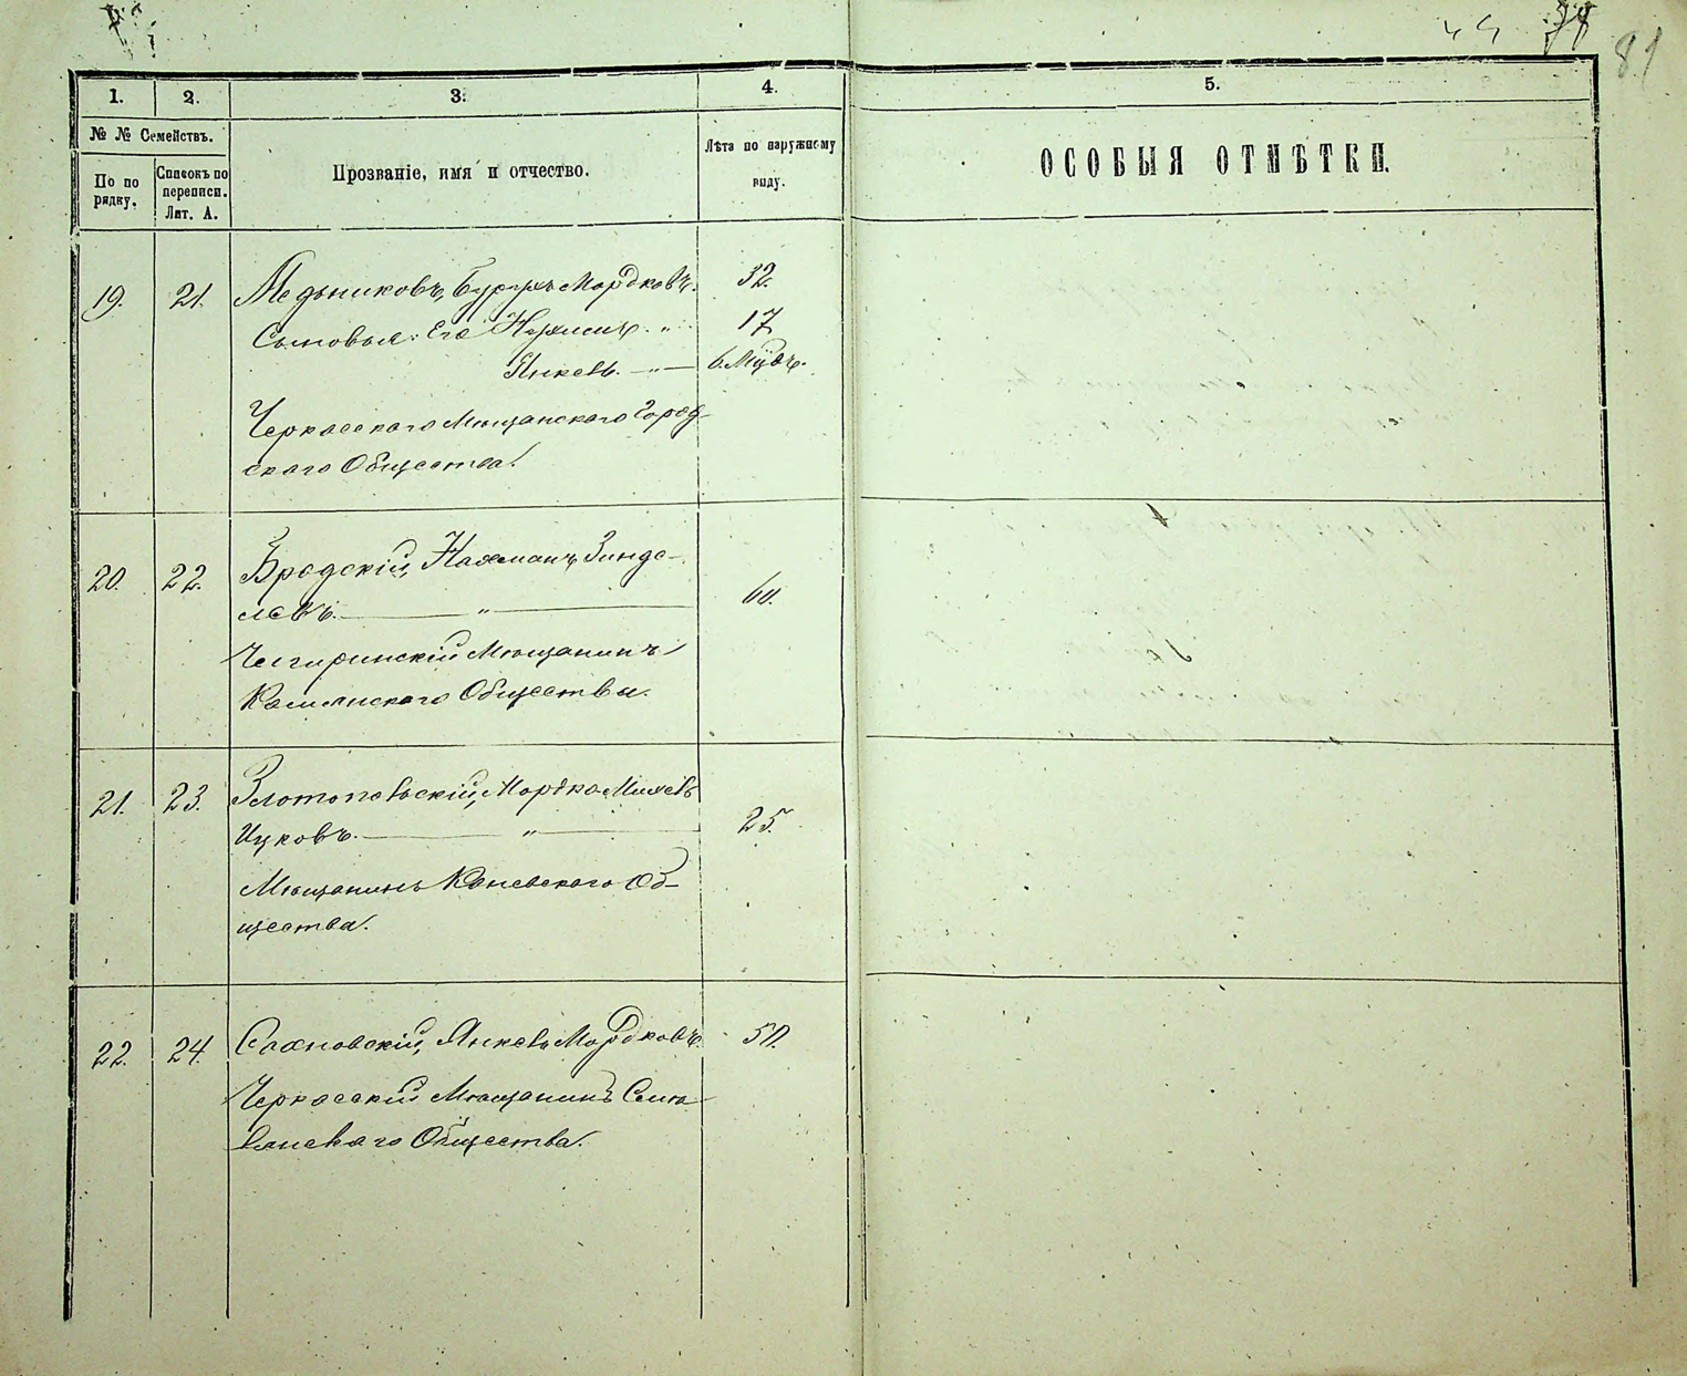 81
1. 2. 3. 4. 5.
№ № Семействъ.
По по рядку.
Списокъ по переписи. Лит. А.
Прозваніе, имя и отчество.
Лѣта по наружному виду.
ОСОБЫЯ ОТМѢТКИ.
19. 21. Медниковъ, Мордковъ. 32.
Сыновья: Его 17
Янкель. —„— 6. Мѣс.
Черкасскаго Мѣщанскаго Город-
скаго Общества.
20. 22. Бродскій, Нахманъ Зинде-
левъ. —„— 60.
Чигиринскій Мѣщанинъ
Каменскаго Общества.
21. 23. Златопольскій, Мордко
Ицковъ. —„— 25.
Мѣщанинъ Каневскаго Об-
щества.
22. 24. Сахновскій, Янкель Мордковъ. 50.
Черкасскій Мѣщанинъ Смѣ-
лянскаго Общества.